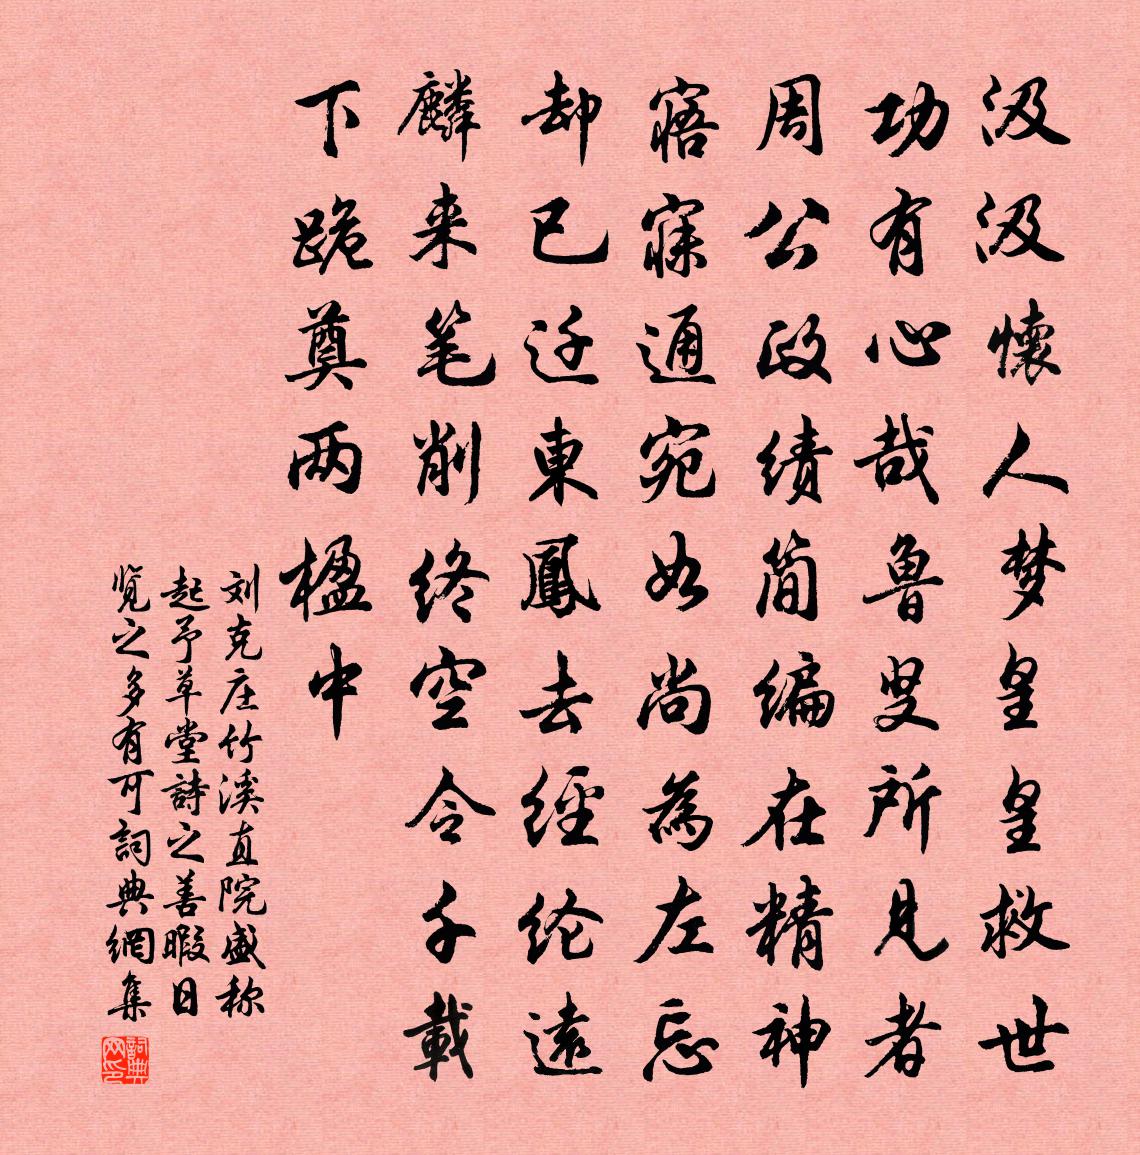 汲汲懷人梦皇皇救世
功有心哉鲁叟所見者
周公政绩简编在精神
寤寐通宛如尚為左忘
却已迁東鳳去經纶遠
麟来笔削终空令千載
下跪奠两楹中
刘克庄竹溪直院盛称
起予草堂詩之善暇日
览之多有可詞典網集
詞典网印